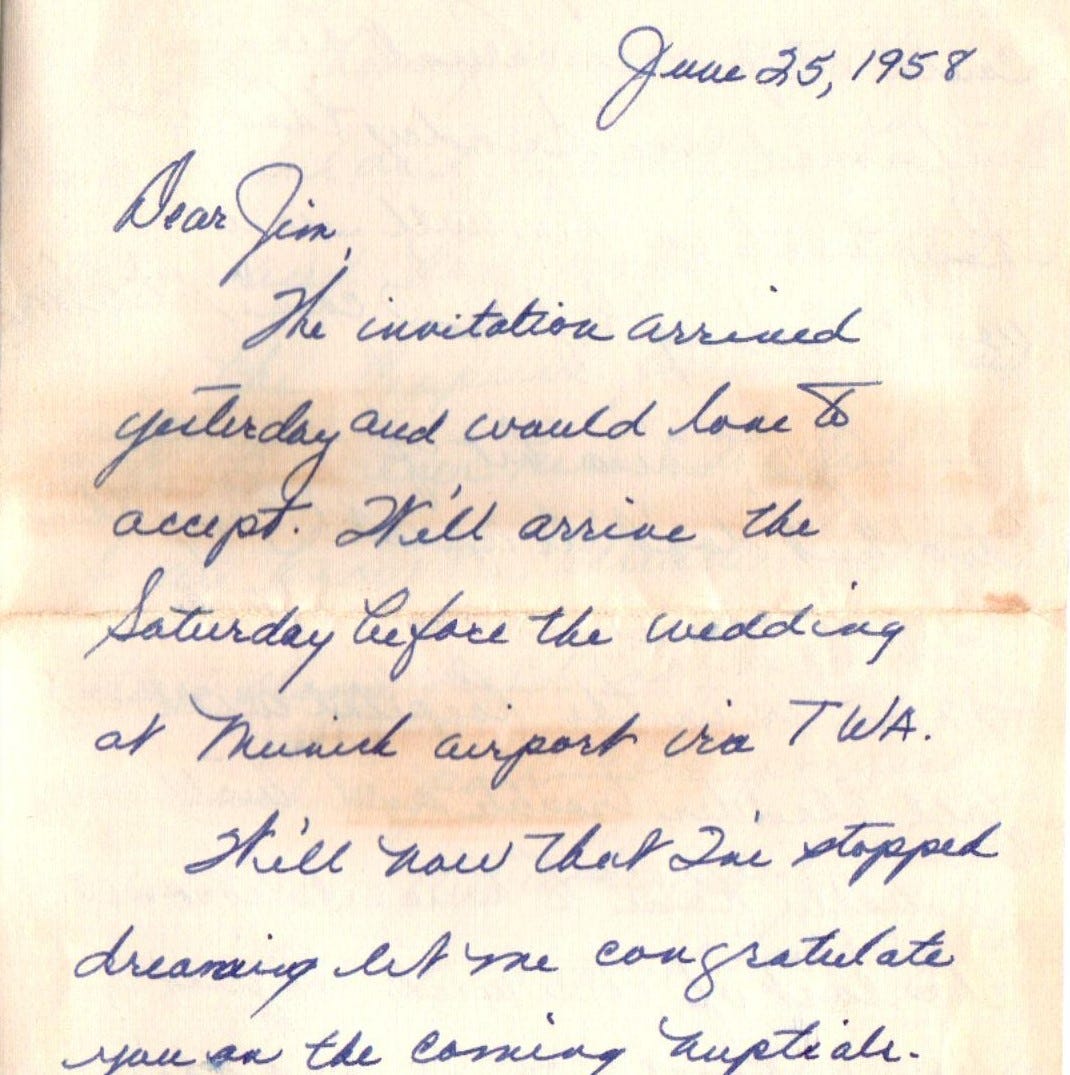 June 25, 1958
Dear Jim,
The invitation arrived
yesterday and would love to
accept. We'll arrive the
Saturday before the wedding
at Munich airport via TWA.
We'll now that I've stopped
dreaming let me congratulate
you on the coming nuptials.